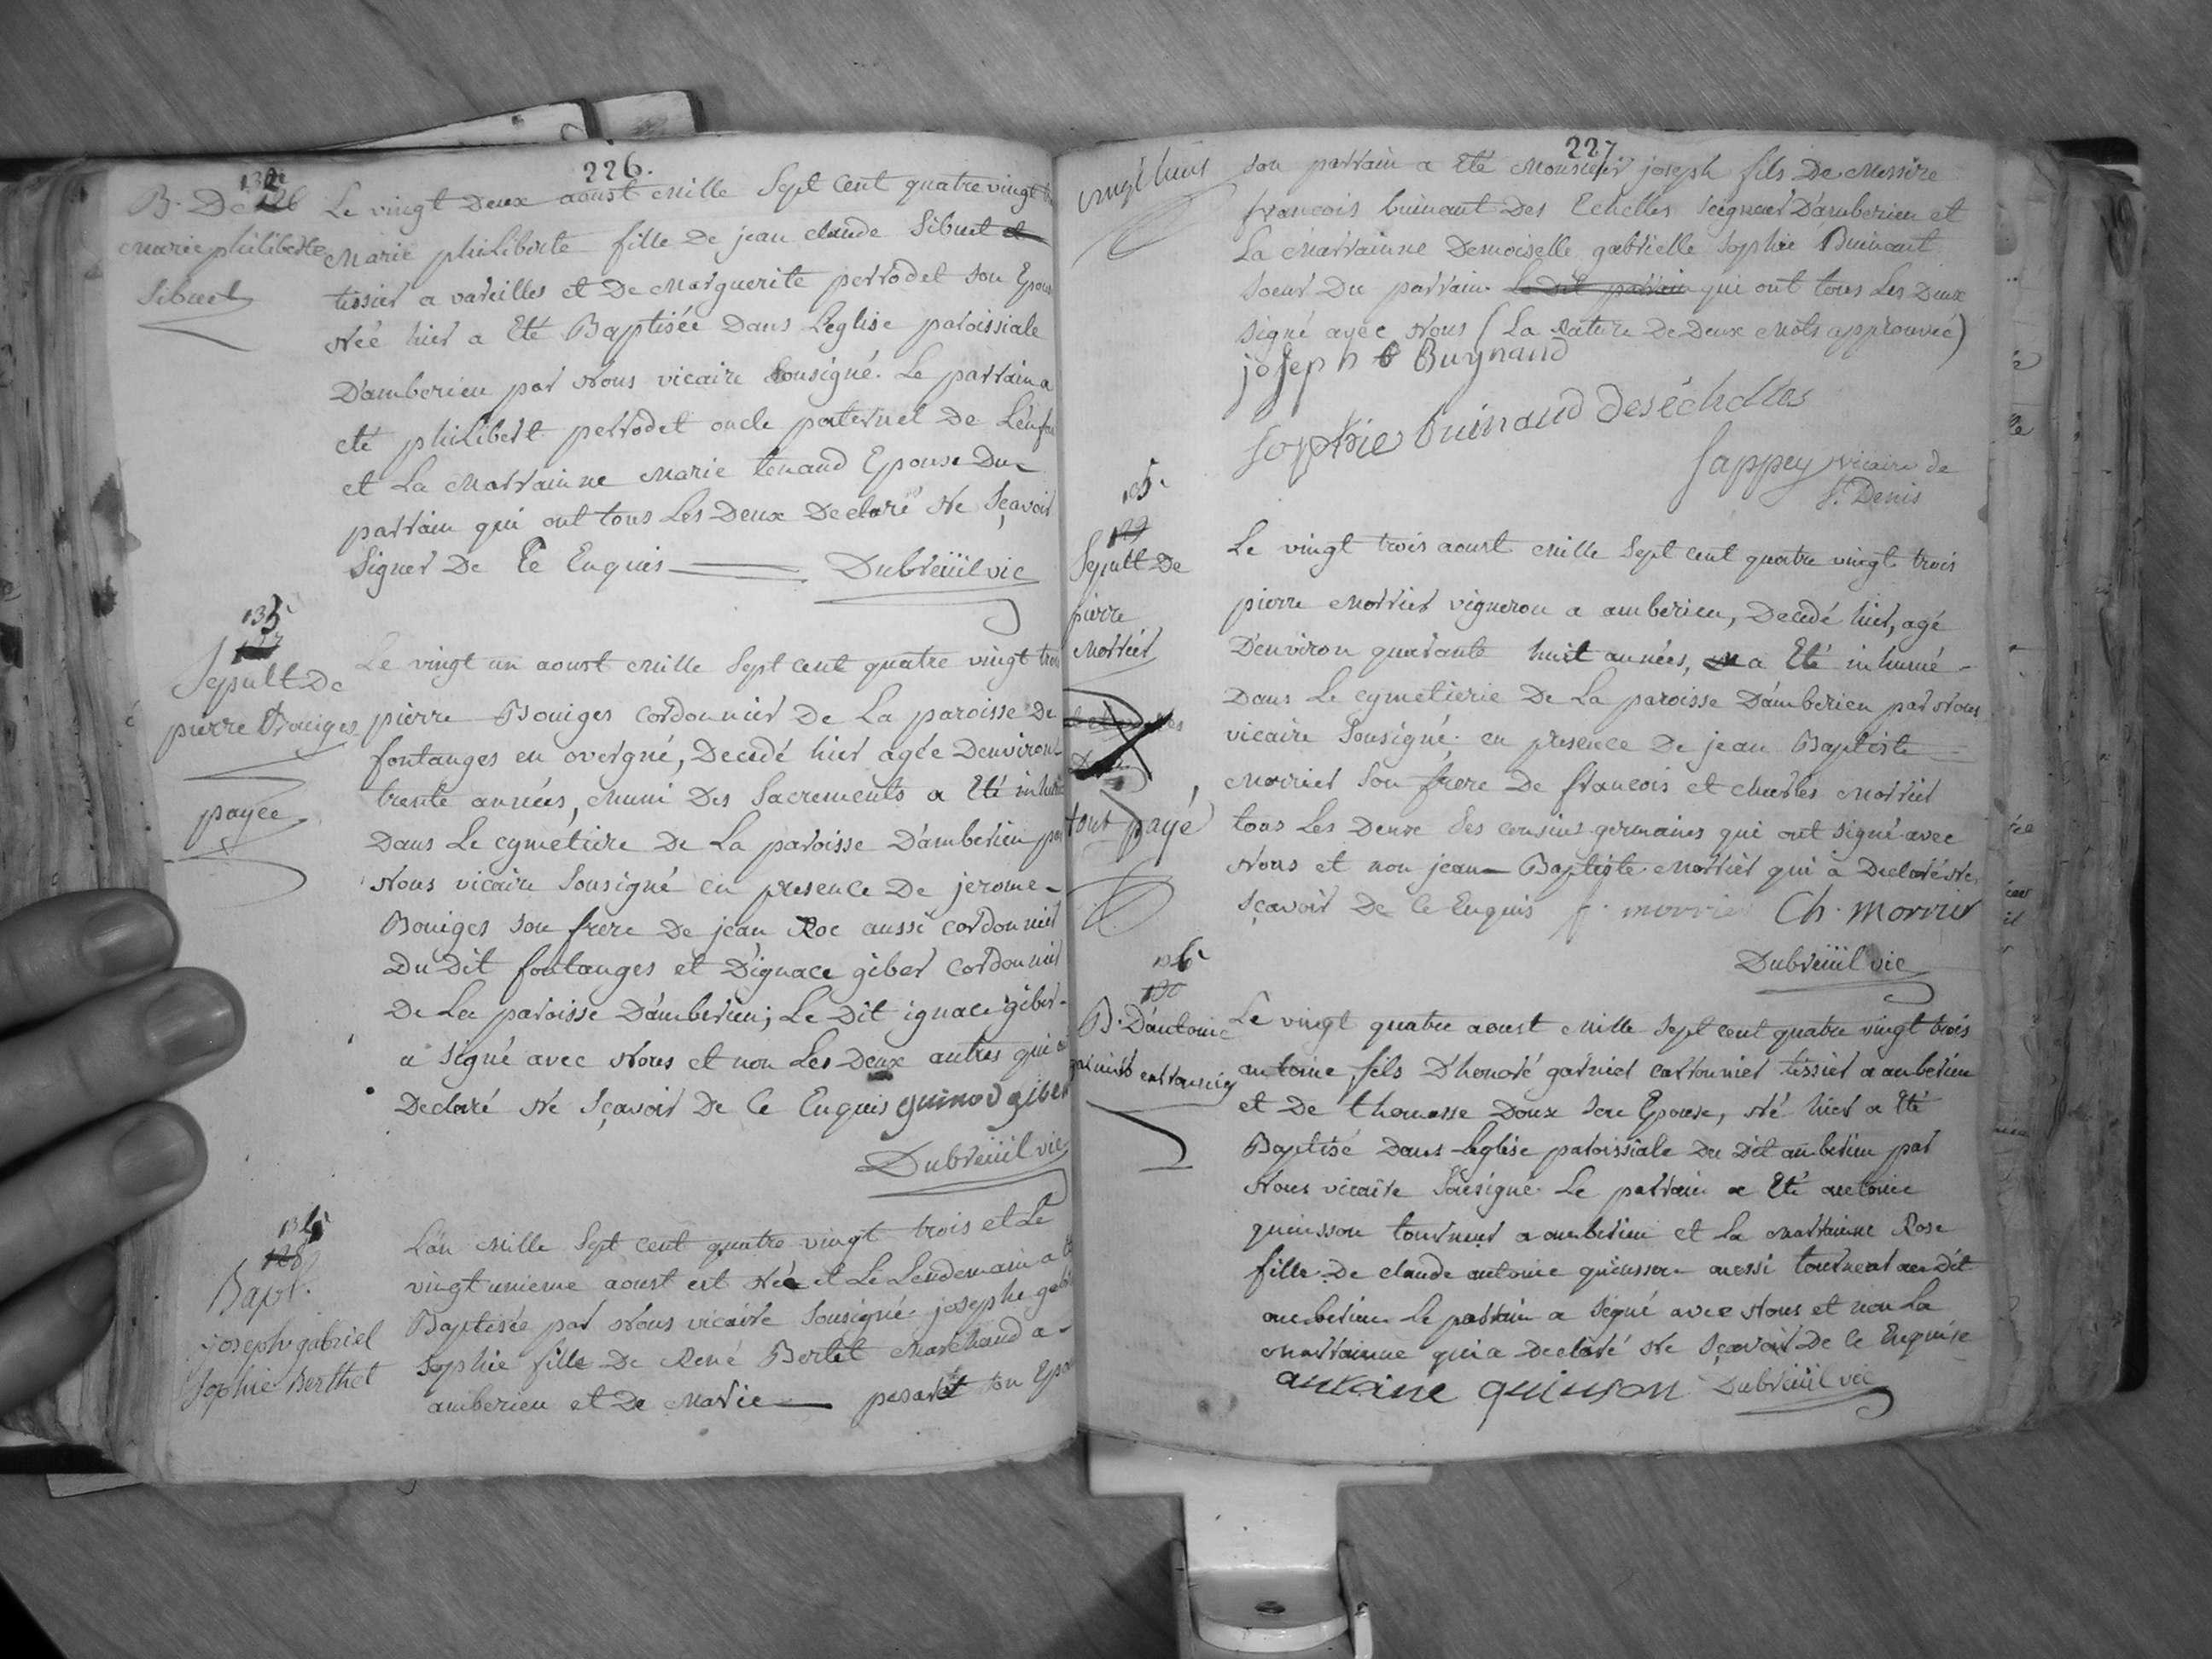 226.
132
B. De 126
marie philiberte
Sibuet
Le vingt Deux aoust mille Sept Cent quatre vingt
Marie philiberte fille De jean claude Sibuet et
tissier a vareilles et De Marguerite perrodet son Epouse
Née hier a Eté Baptisée Dans L'eglise paroissiale
D'amberieu par Nous vicaire Sousigné. Le parrain a
eté philibert perrodet oncle paternel De L'enfan
et La Marrainne Marie tenand Epouse Du
parrain qui ont tous Les Deux Declaré Ne Sçavoir
Signer De Ce Enquis Dubreüil vic
133
127
Sepult De
pierre Bouiges
payée
Le vingt un aoust mille Sept cent quatre vingt trois
pierre Bouiges cordonnier De La paroisse De
fontanges en overgne, Decedé hier agée Denviron
trente années, muni Des Sacrements a Eté inhumé
Dans Le cymetière De La paroisse D'amberieu par
Nous vicaire Sousigné en presence De jerome
Bouiges son frere De jean Roc aussi cordonnier
Du Dit fontanges et D'ignace giber cordonnier
De La paroisse D'amberieu; Le Dit ignace giber
a Signé avec Nous et non Les Deux autres qui ont
Declaré Ne Sçavoir De Ce Enquis giber
Dubreüil vic
134
128
Bapt.
joseph gabriel
Sophie Berthet
L'an mille Sept cent quatre vingt trois et Le
vingt unieme aoust est Née et Le Lendemain a
Baptisée par Nous vicaire Sousigné josephe
Sophie fille De René Bertet Marchand a
amberieu et De Marie son Epouse
227
vingt huit
son parrain a Eté Monsieur joseph fils De Messire
francois buinant Des Echelles Seigneur D'amberieu et
La Marrainne Demoiselle gabrielle Sophie Buinant
Soeur Du parrain. Le dit parrain qui ont tous Les Deux
Signé avec Nous (La Rature De Deux Mots approuvée)
joseph Buynand
Sophie Buinaud deséchelles
Sappey vicaire de
St. Denis
135
129
Sepult De
pierre
Morrier
tout payé
Le vingt trois aoust mille Sept cent quatre vingt trois
pierre Morrier vigneron a amberieu, Decedé hier, agé
D'environ quarante huit années, a Eté inhumé
Dans Le cymetierie De La paroisse D'amberieu par Nous
vicaire Sousigné en presence De jean Baptiste
Morrier Son frere De francois et charles Morrier
tous Les Deux Ses cousins germains qui ont Signé avec
Nous et non jean Baptiste Morrier qui à Declaré Ne
Sçavoir De Ce Enquis f. morrier Ch. Morrier
Dubreüil vic
136
130
B. D'antoine
Le vingt quatre aoust mille Sept cent quatre vingt trois
antoine fils D'honoré garnier cartonnier tissier a amberieu
et De thomasse Doux Son Epouse, Né hier a Eté
Baptisé Dans L'eglise paroissiale Du Dit amberieu par
Nous vicaire Sousigné. Le parrain a Eté antoine
quinsson tourneur a amberieu et La Marrainne Rose
fille De claude antoine quinsson aussi tourneur au Dit
amberieu Le parrain a Signé avec Nous et non La
Marrainne qui a Declaré Ne Sçavoir De Ce Enquise
antoine quinson Dubreüil vic